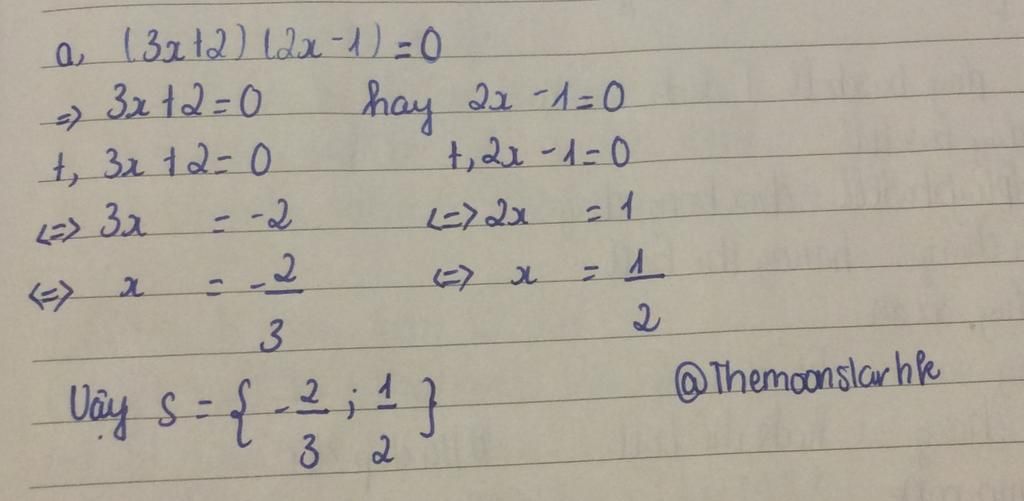 a, (3x+2)(2x-1)=0
=> 3x+2=0 hay 2x-1=0
+, 3x+2=0 +, 2x-1=0
<=> 3x = -2 <=> 2x = 1
<=> x = -2/3 <=> x = 1/2
Vậy S = { -2/3 ; 1/2 }
@Themoonstarhk